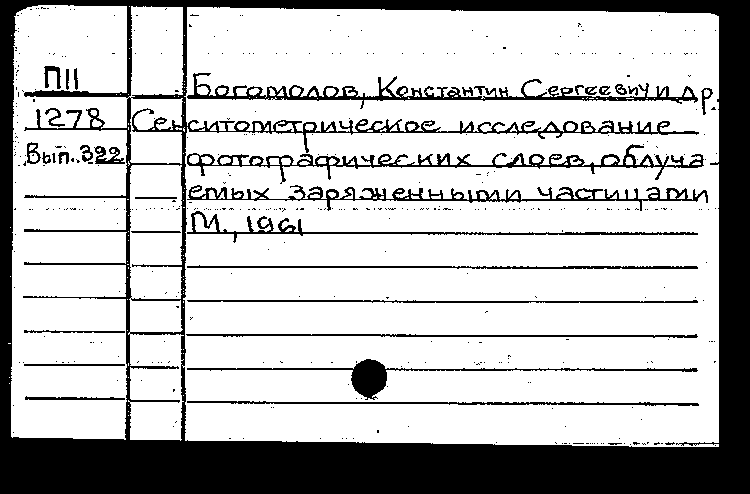 П11
Богомолов, Константин Сергеевич и др.
1278 Сенситометрическое исследование
Вып. 322 фотографических слоев, облуча-
емых заряженными частицами
М., 1961